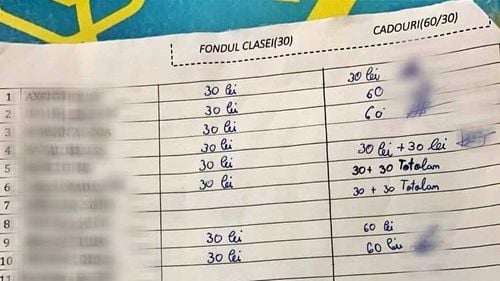 FONDUL CLASEI(30) CADOURI(60/30)
1 30 lei 30 lei
2 30 lei 60
3 30 lei 60
4 30 lei 30 lei + 30 lei
5 30 lei 30 + 30 Totolan
6 30 lei 30 + 30 Totolan
7
8 60 lei
9 30 lei 60 lei
10 30 lei
11